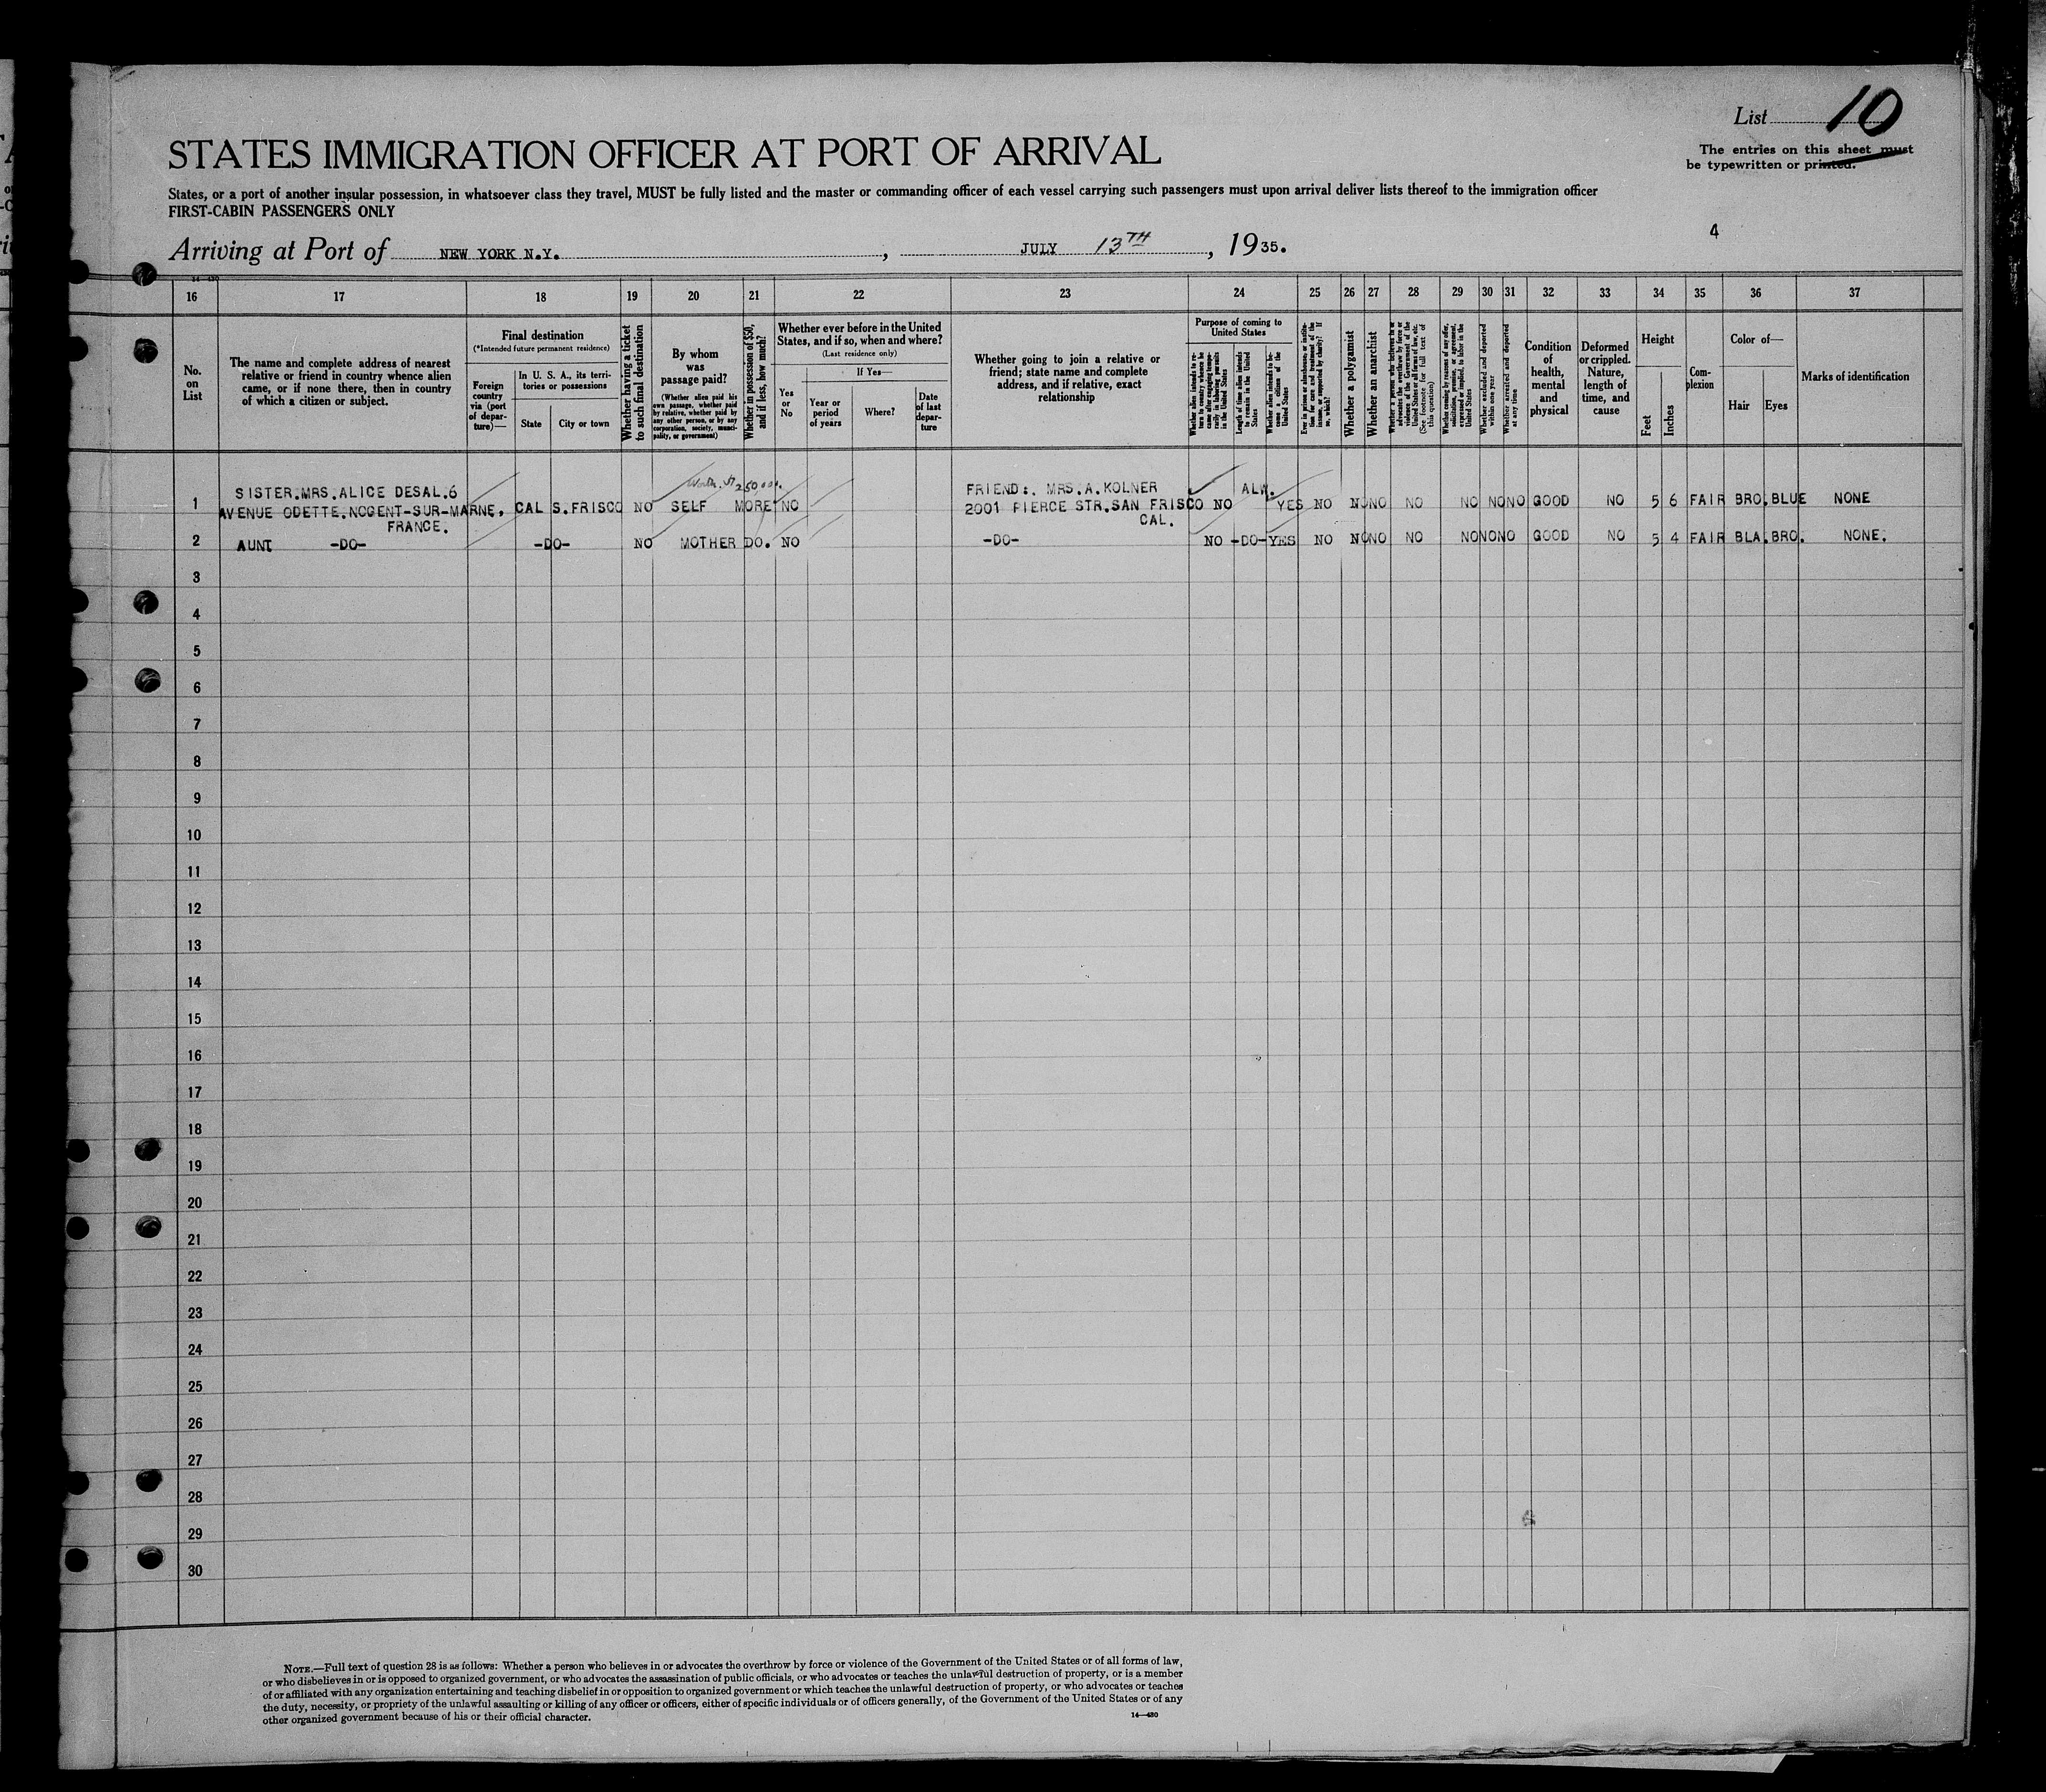 List 10
The entries on this sheet must
be typewritten or printed.
STATES IMMIGRATION OFFICER AT PORT OF ARRIVAL
States, or a port of another insular possession, in whatsoever class they travel, MUST be fully listed and the master or commanding officer of each vessel carrying such passengers must upon arrival deliver lists thereof to the immigration officer
FIRST-CABIN PASSENGERS ONLY
4
Arriving at Port of NEW YORK N.Y. , JULY 13TH , 1935.
16 17 18 19 20 21 22 23 24 25 26 27 28 29 30 31 32 33 34 35 36 37
No. on List
The name and complete address of nearest
relative or friend in country whence alien
came, or if none there, then in country
of which a citizen or subject.
Final destination
(*Intended future permanent residence)
Foreign
country
via (port
of depar-
ture)—
In U. S. A., its terri-
tories or possessions
State
City or town
Whether having a ticket
to such final destination
By whom
was
passage paid?
(Whether alien paid his
own passage, whether paid
by relative, whether paid by
any other person, or by any
corporation, society, munici-
pality, or government)
Whether in possession of $50,
and if less, how much?
Whether ever before in the United
States, and if so, when and where?
(Last residence only)
Yes
or
No
If Yes—
Year or
period
of years
Where?
Date
of last
depar-
ture
Whether going to join a relative or
friend; state name and complete
address, and if relative, exact
relationship
Purpose of coming to
United States
Whether alien intends to re-
turn to country whence he
came after engaging tempo-
rarily in laboring pursuits
in the United States
Length of time alien intends
to remain in the United
States
Whether alien intends to be-
come a citizen of the
United States
Ever in prison or almshouse, or institu-
tion for care and treatment of the
insane, or supported by charity? If
so, which?
Whether a polygamist
Whether an anarchist
(See footnote for full text of
this question)
Whether coming by reason of any offer,
solicitation, promise, or agreement,
expressed or implied, to labor in the
United States
Whether excluded and deported
within one year
Whether arrested and deported
at any time
Condition
of
health,
mental
and
physical
Deformed
or crippled.
Nature,
length of
time, and
cause
Height
Feet
Inches
Com-
plexion
Color of—
Hair
Eyes
Marks of identification
SISTER.MRS.ALICE DESAL.6 250,000. FRIEND:. MRS.A.KOLNER ALW.
1 AVENUE ODETTE.NOGENT-SUR-MARNE, CAL S.FRISCO NO SELF MORE NO 2001 PIERCE STR.SAN FRISCO NO YES NO NO NO NO NO NO NO GOOD NO 5 6 FAIR BRO. BLUE NONE
FRANCE. CAL.
2 AUNT -DO- -DO- NO MOTHER DO. NO -DO- NO -DO- YES NO NO NO NO NO NO NO GOOD NO 5 4 FAIR BLA. BRO. NONE.
3
4
5
6
7
8
9
10
11
12
13
14
15
16
17
18
19
20
21
22
23
24
25
26
27
28
29
30
NOTE.—Full text of question 28 is as follows: Whether a person who believes in or advocates the overthrow by force or violence of the Government of the United States or of all forms of law,
or who disbelieves in or is opposed to organized government, or who advocates the assassination of public officials, or who advocates or teaches the unlawful destruction of property, or is a member
of or affiliated with any organization entertaining and teaching disbelief in or opposition to organized government or which teaches the unlawful destruction of property, or who advocates or teaches
the duty, necessity, or propriety of the unlawful assaulting or killing of any officer or officers, either of specific individuals or of officers generally, of the Government of the United States or of any
other organized government because of his or their official character.
14—430